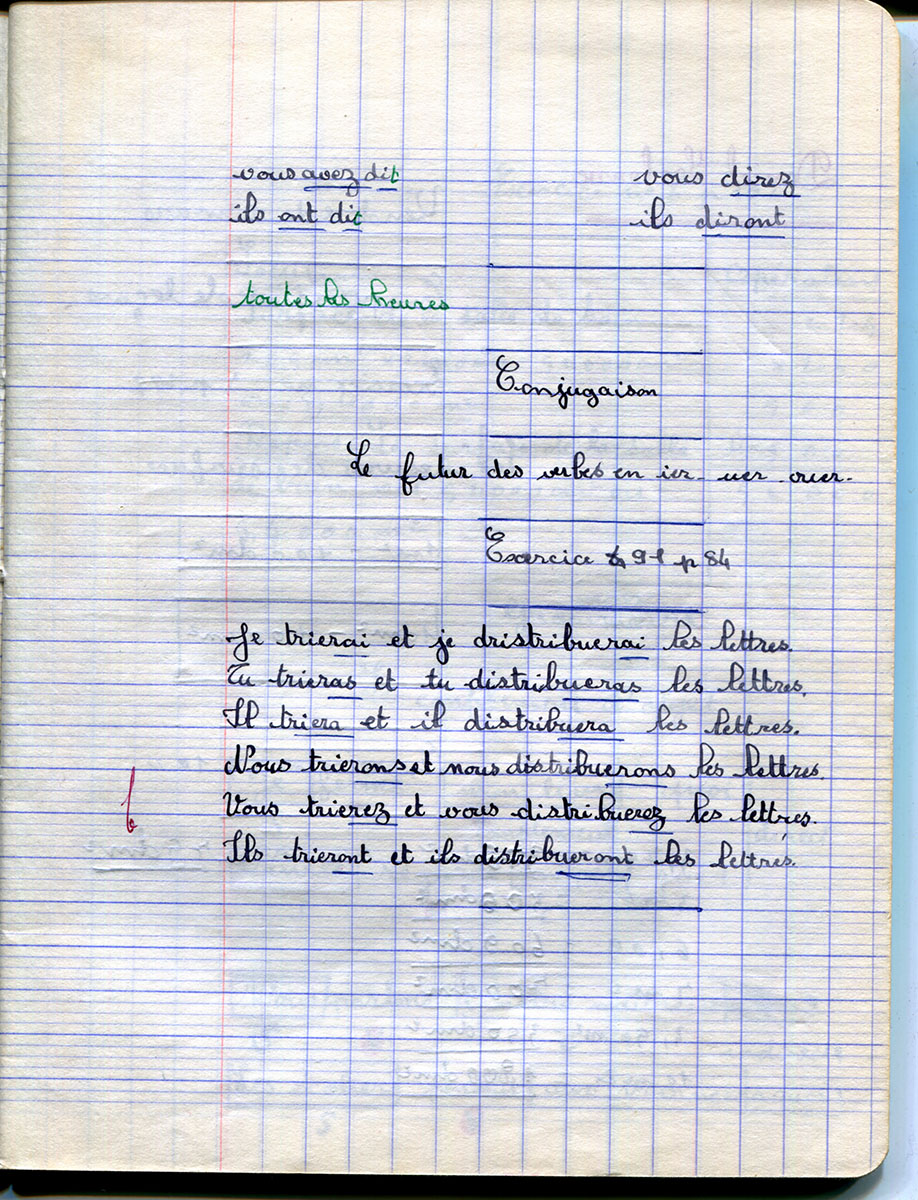 vous avez dit vous direz
ils ont dit ils diront
toutes les heures
Conjugaison
Le futur des verbes en ier - uer - ouer.
Exercice 91 p 84
Je trierai et je dristribuerai les lettres.
Tu trieras et tu distribueras les lettres.
Il triera et il distribuera les lettres.
Nous trierons et nous distribuerons les lettres.
Vous trierez et vous distribuerez les lettres.
Ils trieront et ils distribueront les lettres.
b